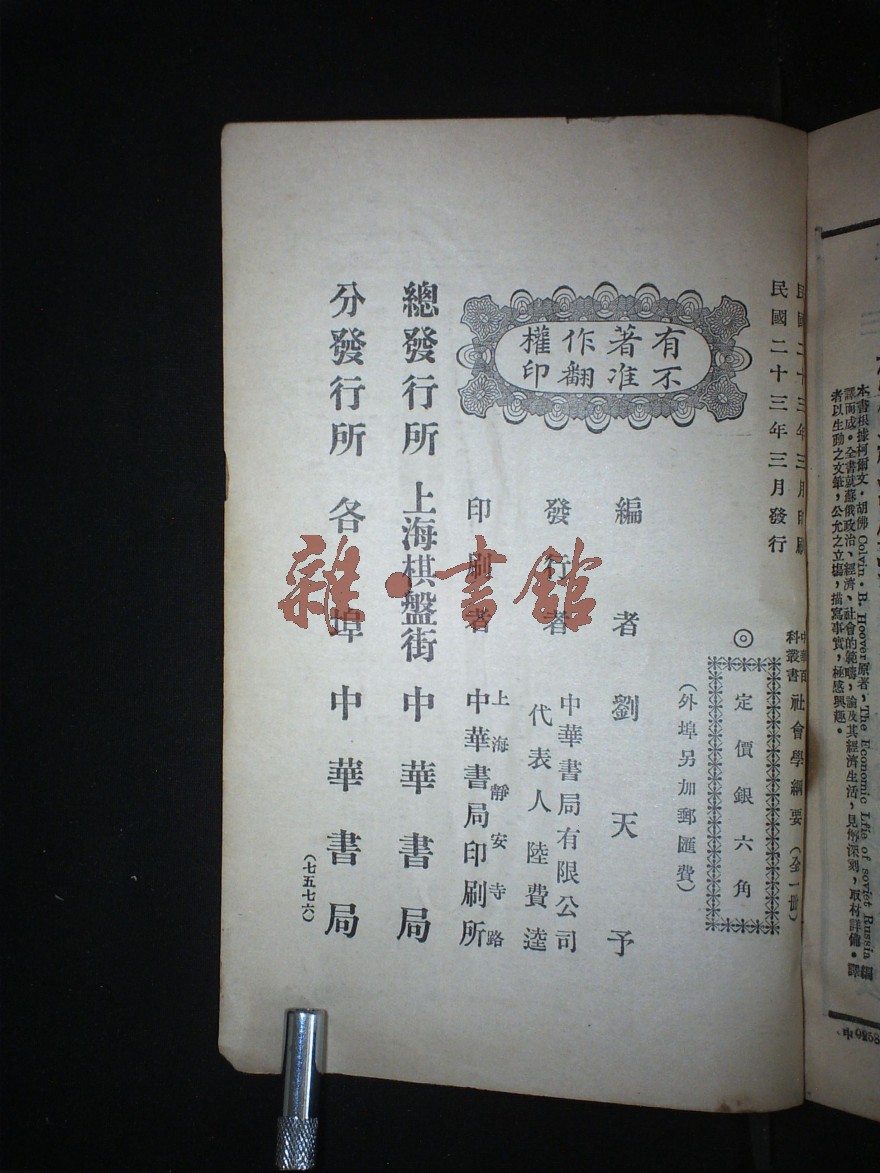 民國二十三年三月印刷
民國二十三年三月發行
中華百科叢書 社會學綱要（全一冊）
◎定價銀六角
（外埠另加郵匯費）
有著作權
不准翻印
編者 劉天予
發行者 中華書局有限公司
代表人 陸費逵
印刷者 上海靜安寺路
中華書局印刷所
總發行所 上海棋盤街 中華書局
分發行所 各埠 中華書局
（七五七六）
雜·書館
本書根據柯爾文·胡佛 Colvin·B. Hoover 原著，The Economic Lfie of soviet Russia
譯而成。全書就蘇俄政治、經濟、社會的範疇，論及其經濟生活，見解深刻，取材詳備。譯
者以生動之文筆，公允之立場，描寫事實，極感興趣。